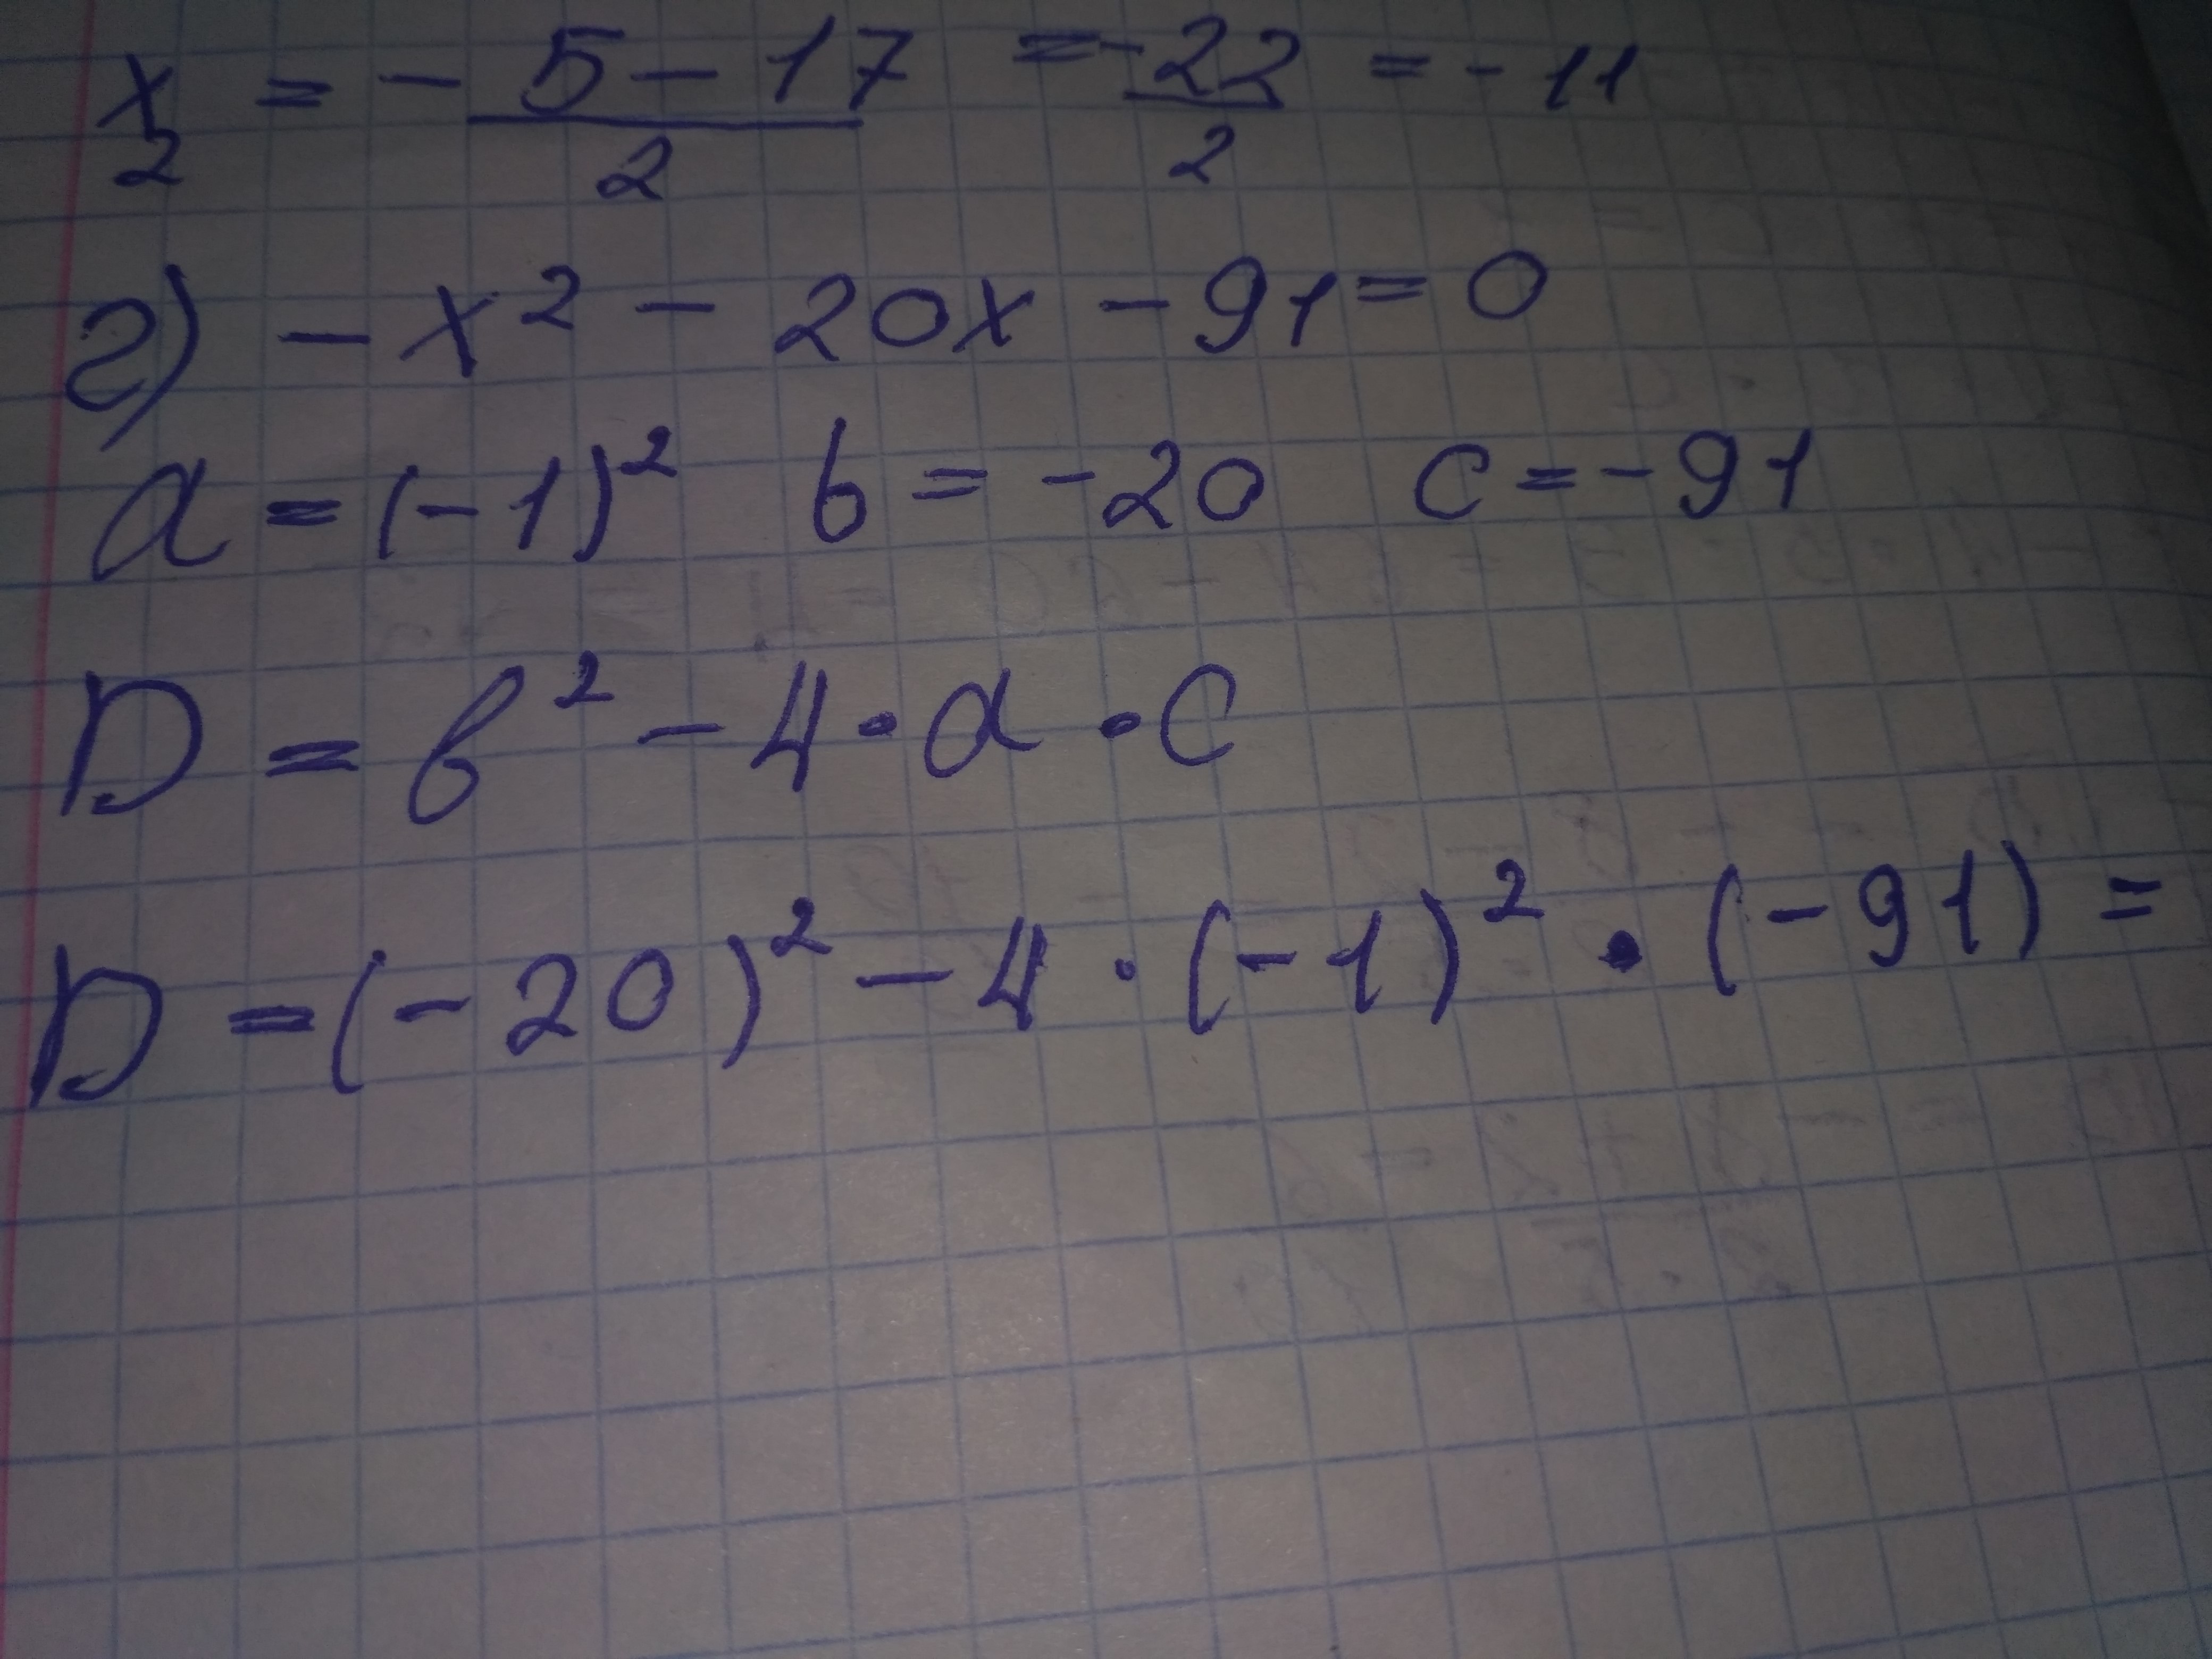 x₂ = - 5 - 17 / 2 = -22 / 2 = - 11
г) - x² - 20x - 91 = 0
a = (-1)² b = -20 c = -91
D = b² - 4 · a · c
D = (-20)² - 4 · (-1)² · (-91) =